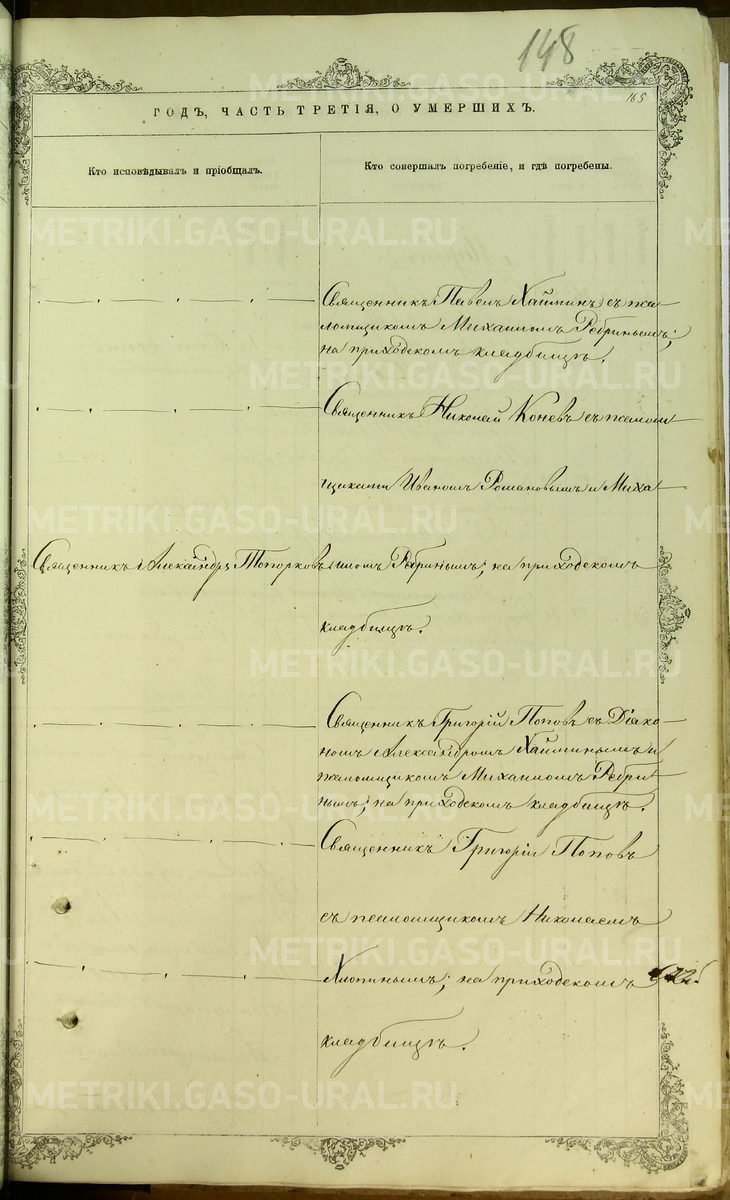 148
165
ГОДЪ, ЧАСТЬ ТРЕТІЯ, О УМЕРШИХЪ.
Кто исповѣдывалъ и пріобщалъ.
Кто совершалъ погребеніе, и гдѣ погребены.
Священникъ Павелъ Хайминъ съ пса-
ломщикомъ Михаиломъ Ребринымъ;
на приходскомъ кладбищѣ.
Священникъ Николай Коневъ съ псалом
щиками Иваномъ Романовымъ и Миха-
Священникъ Александръ Топорковъ
иломъ Ребринымъ; на приходскомъ
кладбищѣ.
Священникъ Григорій Поповъ съ Діяко-
номъ Александромъ Хайминымъ и
псаломщикомъ Михаиломъ Ребри-
нымъ; на приходскомъ кладбищѣ.
Священникъ Григорій Поповъ
съ псаломщикомъ Николаемъ
Хлопинымъ; на приходскомъ
кладбищѣ.
METRIKI.GASO-URAL.RU